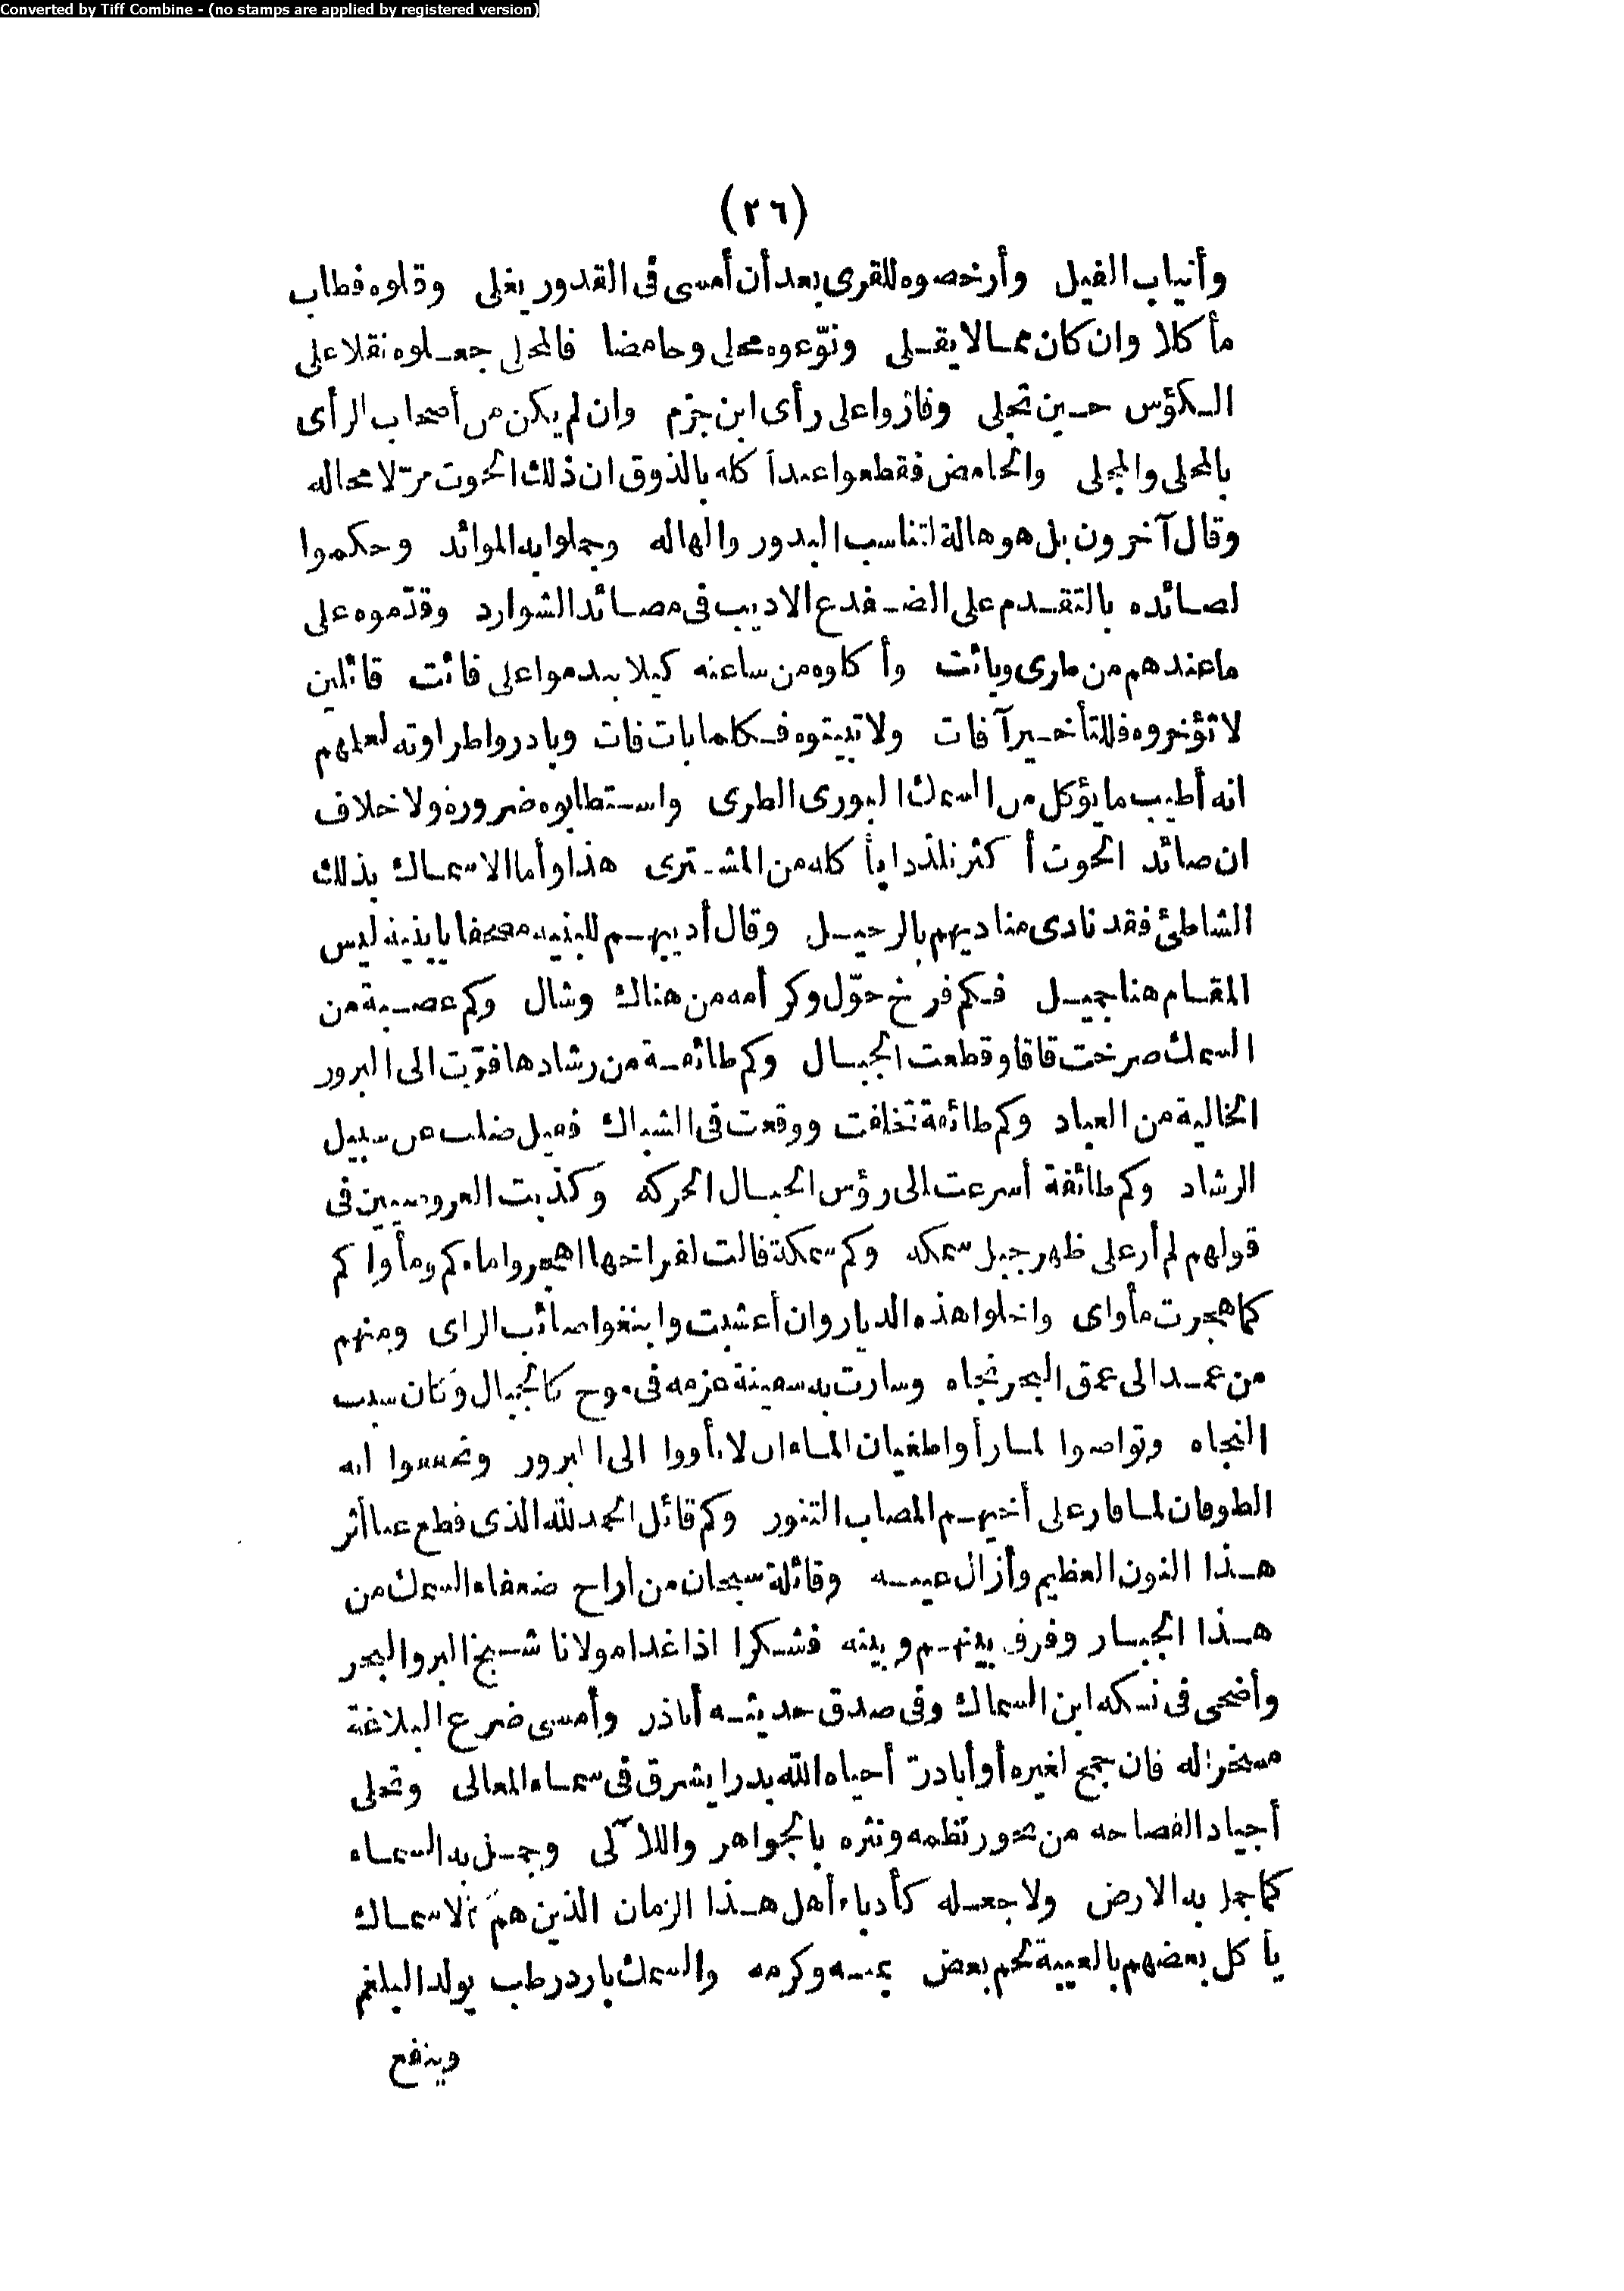 Converted by Tiff Combine - (no stamps are applied by registered version)
(٢٦)
وأنياب الفيل وأرخصوه للقرى بعد أن أمسى فى القدور يغلى وقلوه فطاب
مأكلا وان كان ممالا يقلى ونوّعوه محلى وحامضا فالمحلى جعلوه نقلا على
الكؤس حين تجلى وفازوا على رأى ابن حزم وان لم يكن من أصحاب الرأى
بالمحلى والمجلى والحامض فقطعوا عند أكله بالذوق ان ذلك الحوت مرّ لا محاله
وقال آخرون بل هو هالة لتناسب البدور والهاله وجلوا به الموائد وحكموا
لصائده بالتقدم على الضفدع الاديب فى مصائد الشوارد وقدّموه على
ما عندهم من طرى وبائت وأكلوه من ساعته كيلا يندموا على فائت قائلين
لا تؤخروه فللتأخير آفات ولا تبيتوه فكلما بات فات وبادروا طراوته لعلمهم
انه أطيب ما يؤكل من السمك البورى الطرى واستطابوه ضرورة ولا خلاف
ان صائد الحوت أكثر تلذذا بأكله من المشترى هذا وأما الاسماك بذلك
الشاطئ فقد نادى مناديهم بالرحيل وقال أديبهم للبنيه مصحفا يا بنيه ليس
المقام هنا جميل فكم فرخ حوّل وكر أمه من هناك وشال وكم عصبة من
السمك صرخت قاقا وقطعت الجبال وكم طائفة من رشادها فرّت الى البرور
الخالية من العباد وكم طائفة تخلفت ووقعت فى الشباك فقيل ضلت عن سبيل
الرشاد وكم طائفة أسرعت الى رؤس الجبال الحركه وكذبت العروضيين فى
قولهم لم أر على ظهر جبل سمكه وكم سمكة قالت لفراخها اهجروا ماءكم ومأواكم
كما هجرت مأواى واخلوا هذه الديار وان أعشبت وابتغوا صائب الراى ومنهم
من عمد الى عمق البحر تجاه وسارت به سفينة عزمه فى موج كالجبال وكان سبب
النجاه وتواصوا لما رأوا طغيان الماء ان لا يأووا الى البرور وتحققوا انه
الطوفان لما فار على أخيهم المصاب التنور وكم قائل الحمد لله الذى قطع عنا أثر
هذا النون العظيم وأزال عينه وقائلة سبحان من أراح ضعفاء السمك من
هذا الجبار وفرق بينهم وبينه فشكرا اذا غدا مولانا شيخ البر والبحر
وأضحى فى نسكه ابن السماك وفى صدق حديثه أباذر وأمسى ضرع البلاغة
مسخرا له فان جمح لغيره أو أبادر أحياه الله بدرا يشرق فى سماء المعالى وتحلى
أجياد الفصاحه من بحور نظمه ونثره بالجواهر واللآلى وجمل به السماء
كما جمل به الارض ولا جعله كأدباء أهل هذا الزمان الذين هم كالاسماك
يأكل بعضهم بالغيبة لحم بعض بمنه وكرمه والسمك بارد رطب يولد البلغم
وينفع